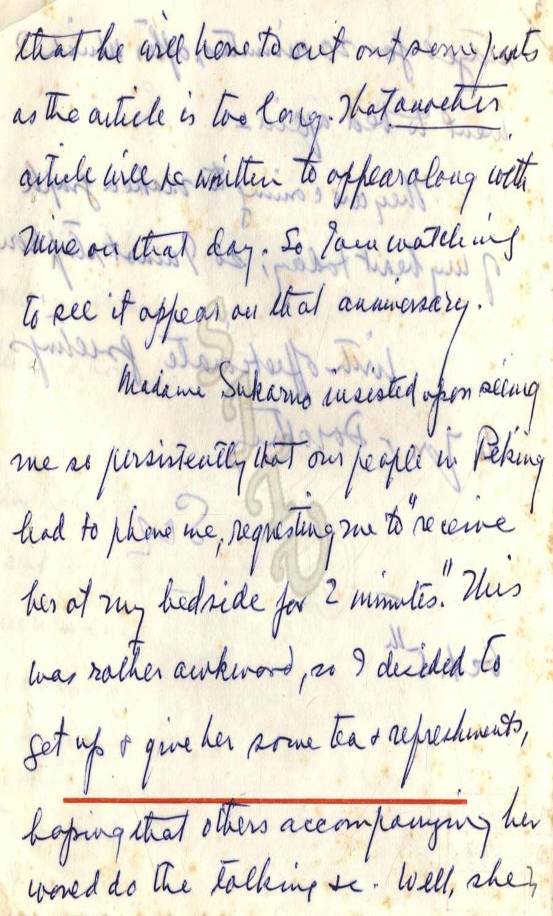 that he will have to cut out some parts
as the article is too long. That another
article will be written to appear along with
mine on that day. So I am watching
to see it appear on that anniversary.
Madame Sukarno insisted upon seeing
me so persistently that our people in Peking
had to phone me, requesting me to "receive
her at my bedside for 2 minutes." This
was rather awkward, so I decided to
get up & give her some tea & refreshments,
hoping that others accompanying her
would do the talking &c. Well, she